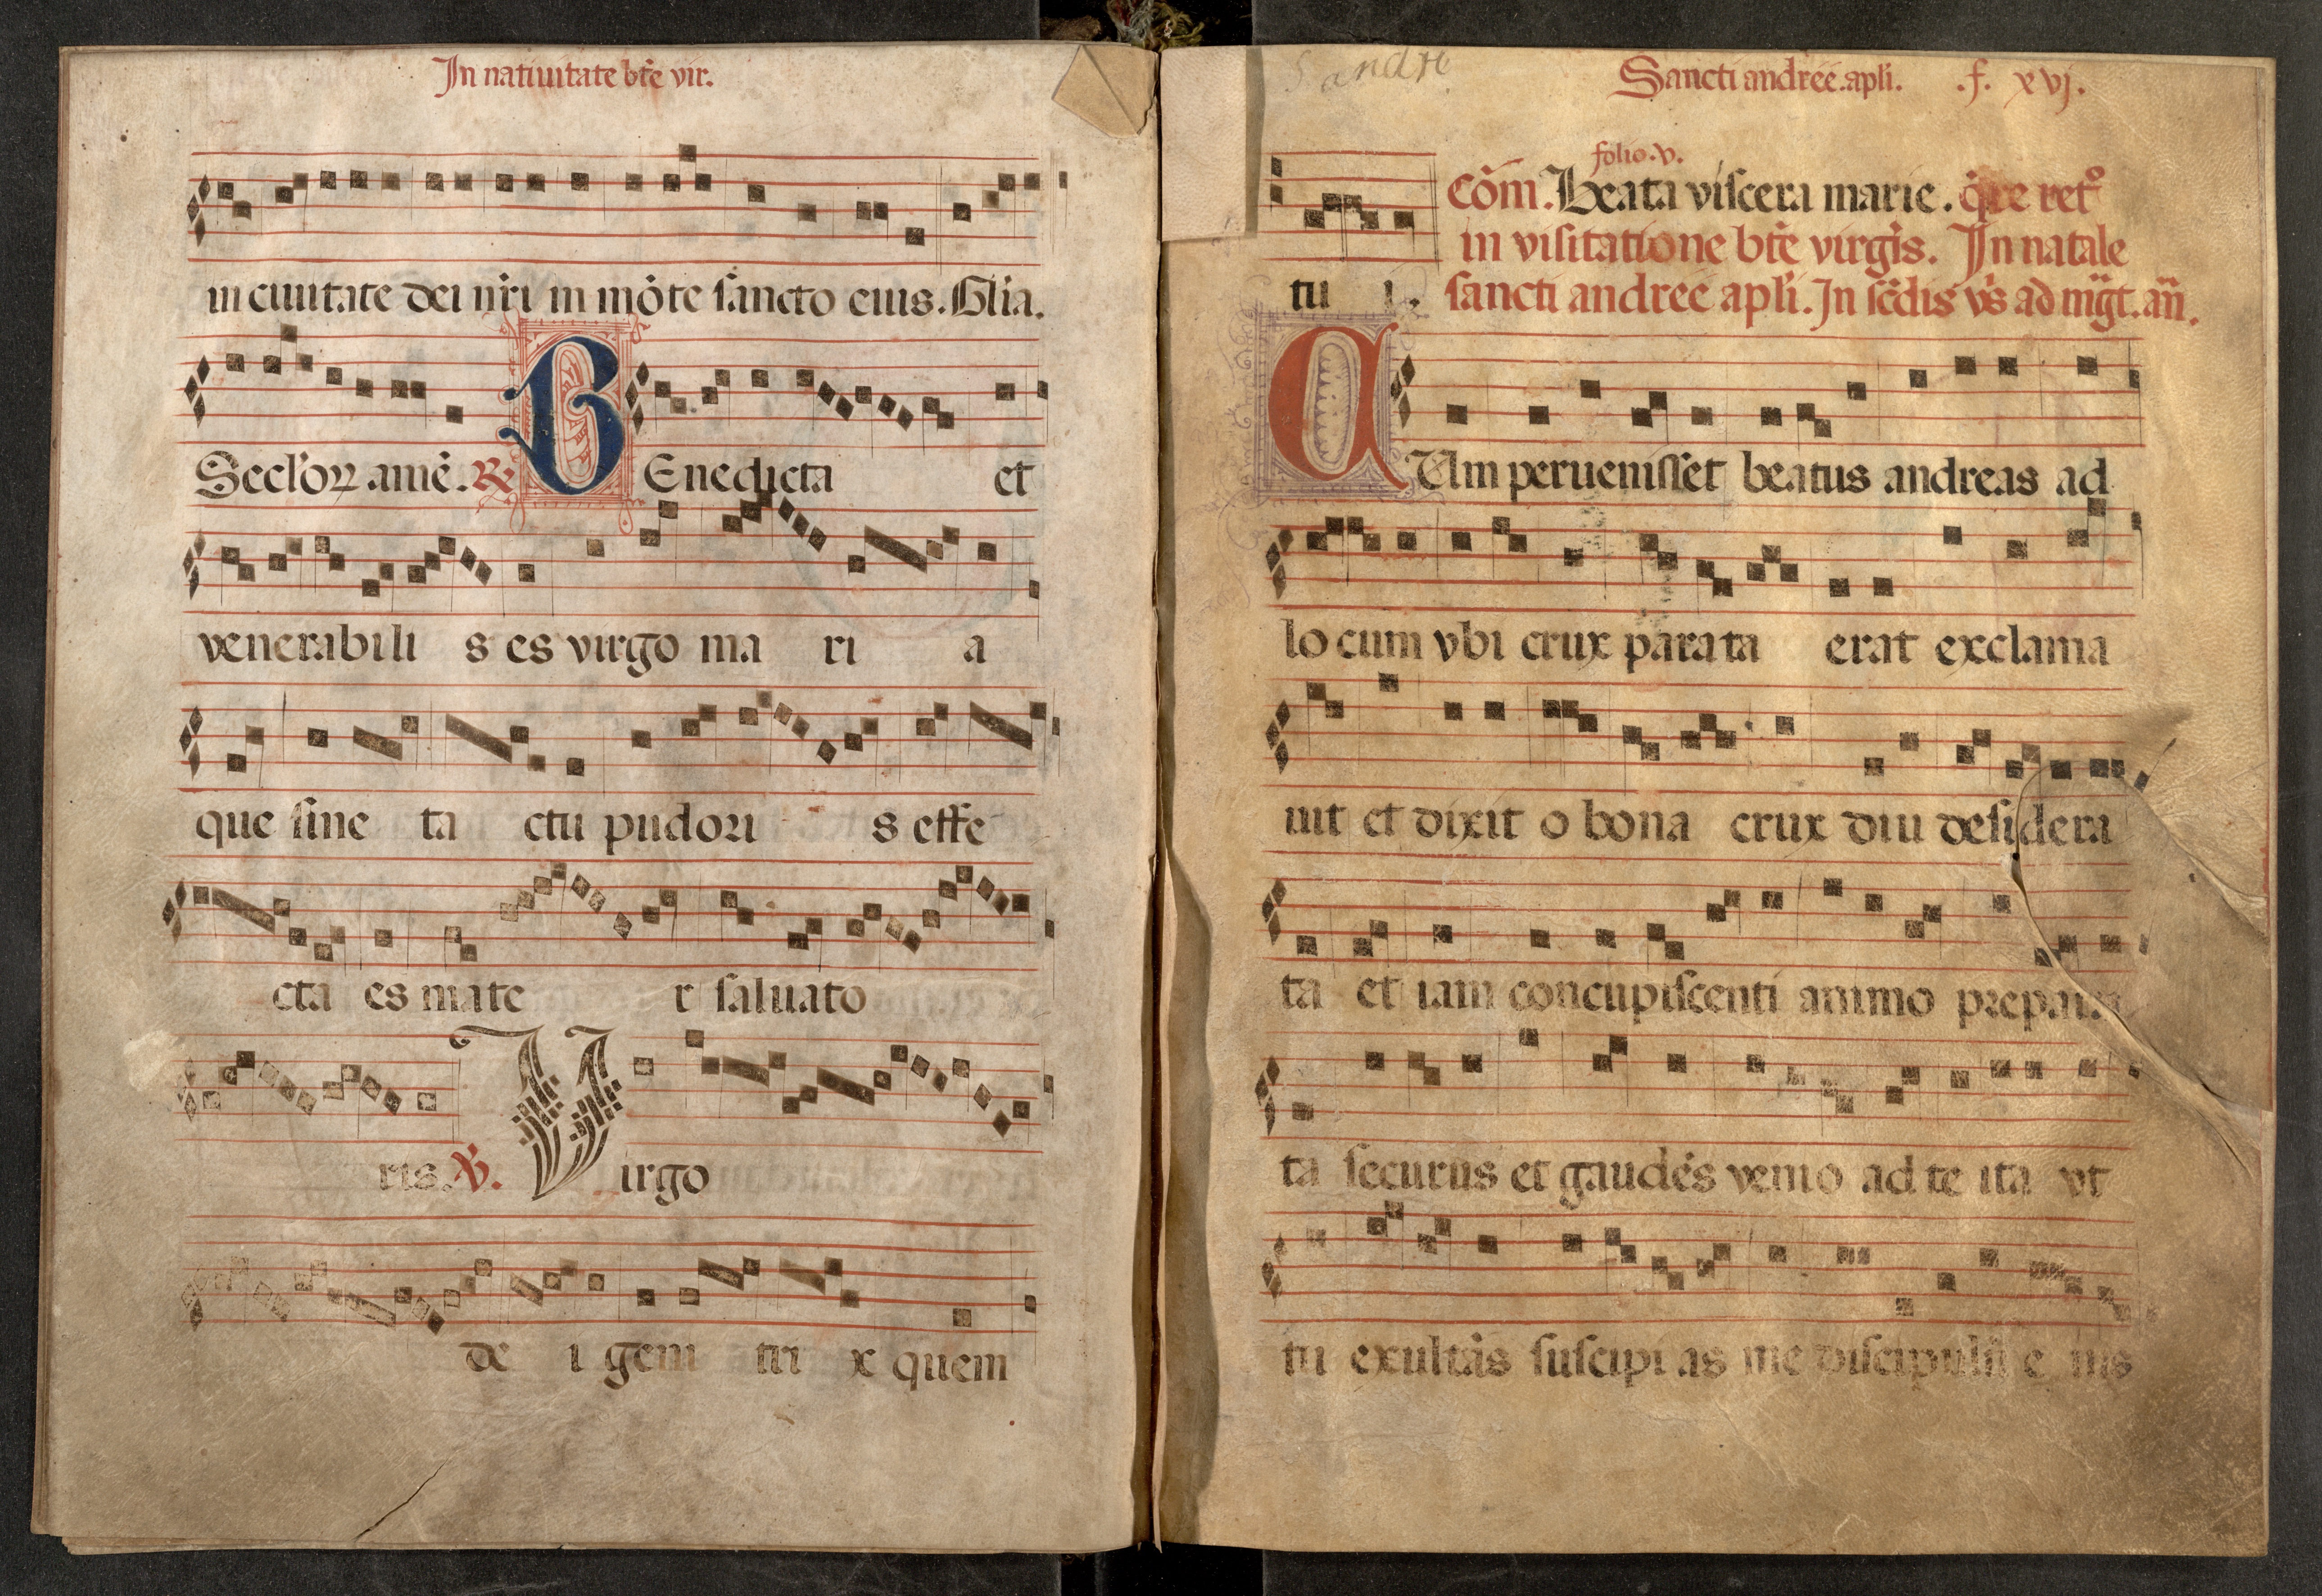 In natiuitate bt̄e vir.
in ciuitate dei nr̄i in mōte sāncto eius. Glīa.
Secl'oꝝ amē. ℟ BEnedicta et
venerabili s es virgo ma ri a
que ſine ta ctu pudori s effe
cta es mate r ſaluato
ris. ℣. Virgo
de i geni tri x quem
S andre
Sancti andreē. apl'i. .f. xvj.
folio .v.
Cōm. Beata viſcera marie.
in viſitatione bt̄e virgīs. In natale
tu i. ſancti andreē apl'i. In ſc̄dis vs̄ ad mḡt. an̄.
CUm perueniſſet beatus andreas ad
lo cum vbi crux parata erat exclama
uit et dixit o bona crux diu deſidera
ta et iam concupiſcenti animo prepara
ta ſecurus et gaudēs venio ad te ita vt
tu exultās ſuſcipi as me diſcipulū e ius